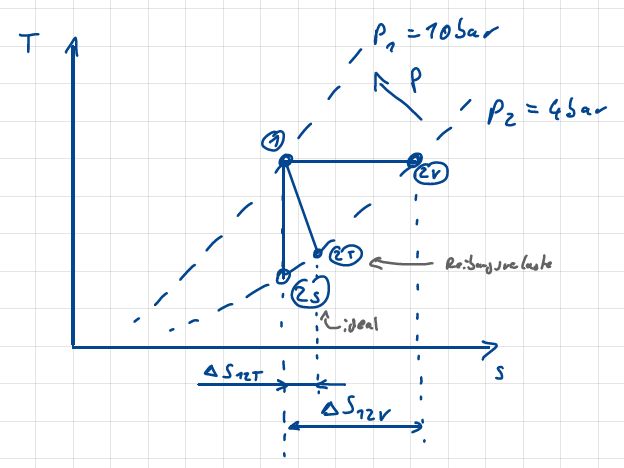 T
P₁ = 10 bar
P
P₂ = 4 bar
1
2V
2T
Reibungsverluste
2s
ideal
s
ΔS₁₂T
ΔS₁₂V